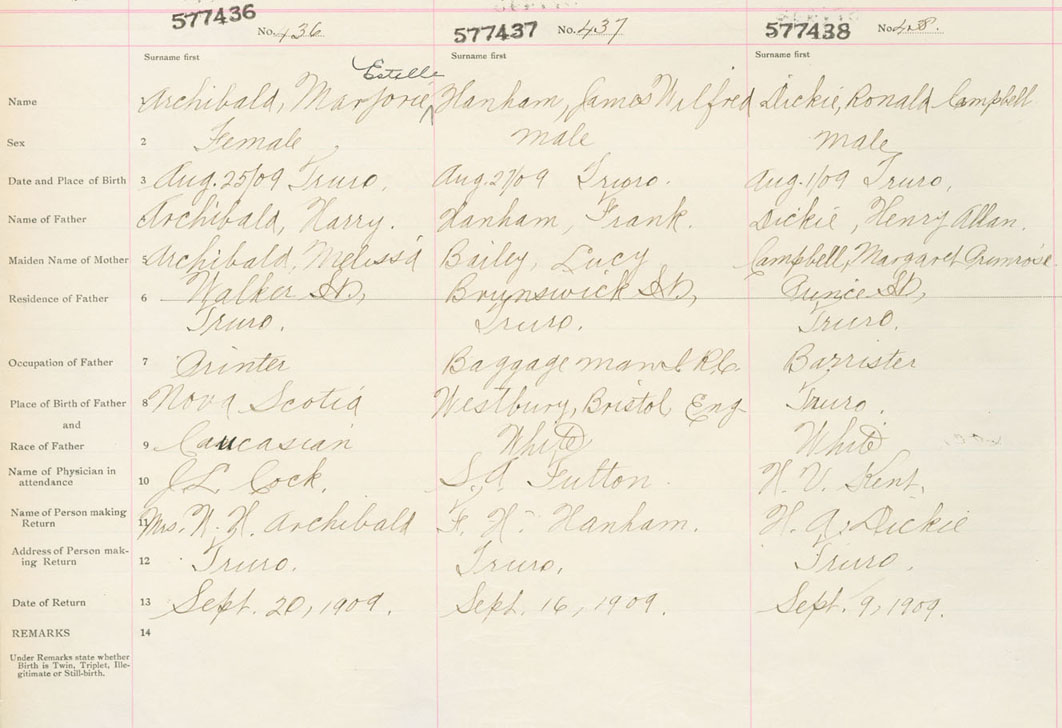 577436 No. 436 577437 No. 437 577438 No. 438.
Surname first Surname first Surname first
Estelle
Name 1 Archibald, Marjorie Hanham, James Wilfred Dickie, Ronald Campbell
Sex 2 Female male male
Date and Place of Birth 3 Aug. 25/09 Truro. Aug. 27/09 Truro. Aug. 1/09 Truro,
Name of Father Archibald, Harry. Hanham, Frank. Dickie, Henry Allan.
Maiden Name of Mother 5 Archibald, Melissa Bailey, Lucy Campbell, Margaret Primrose
Residence of Father 6 Walker St, Brunswick St, Prince St,
Truro. Truro. Truro.
Occupation of Father 7 Printer Baggage man Barrister
Place of Birth of Father 8 Nova Scotia Westbury, Bristol Eng Truro.
and
Race of Father 9 Caucasian White White
Name of Physician in
attendance 10 J L Cock. Fulton. H. V. Kent.
Name of Person making
Return 11 Mrs. Archibald F. H. Hanham. H. A. Dickie
Address of Person mak-
ing Return 12 Truro. Truro. Truro.
Date of Return 13 Sept. 20, 1909. Sept. 16, 1909. Sept. 9, 1909.
REMARKS 14
Under Remarks state whether
Birth is Twin, Triplet, Ille-
gitimate or Still-birth.